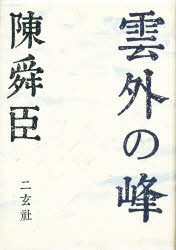 雲外の峰
陳舜臣
二玄社